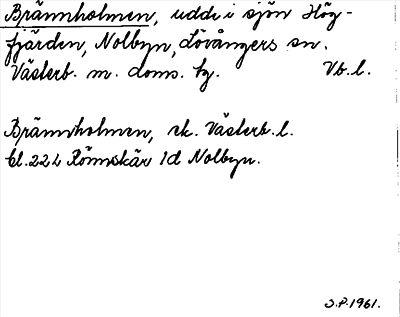 Brännholmen, udde i sjön Hög-
fjärden, Nolbyn, Lövångers sn.
Västerb. m. doms. tg. Vb. l.
Brännholmen, rk. Västerb. l.
bl. 222 Rönnskär 1d Nolbyn.
J.P. 1961.